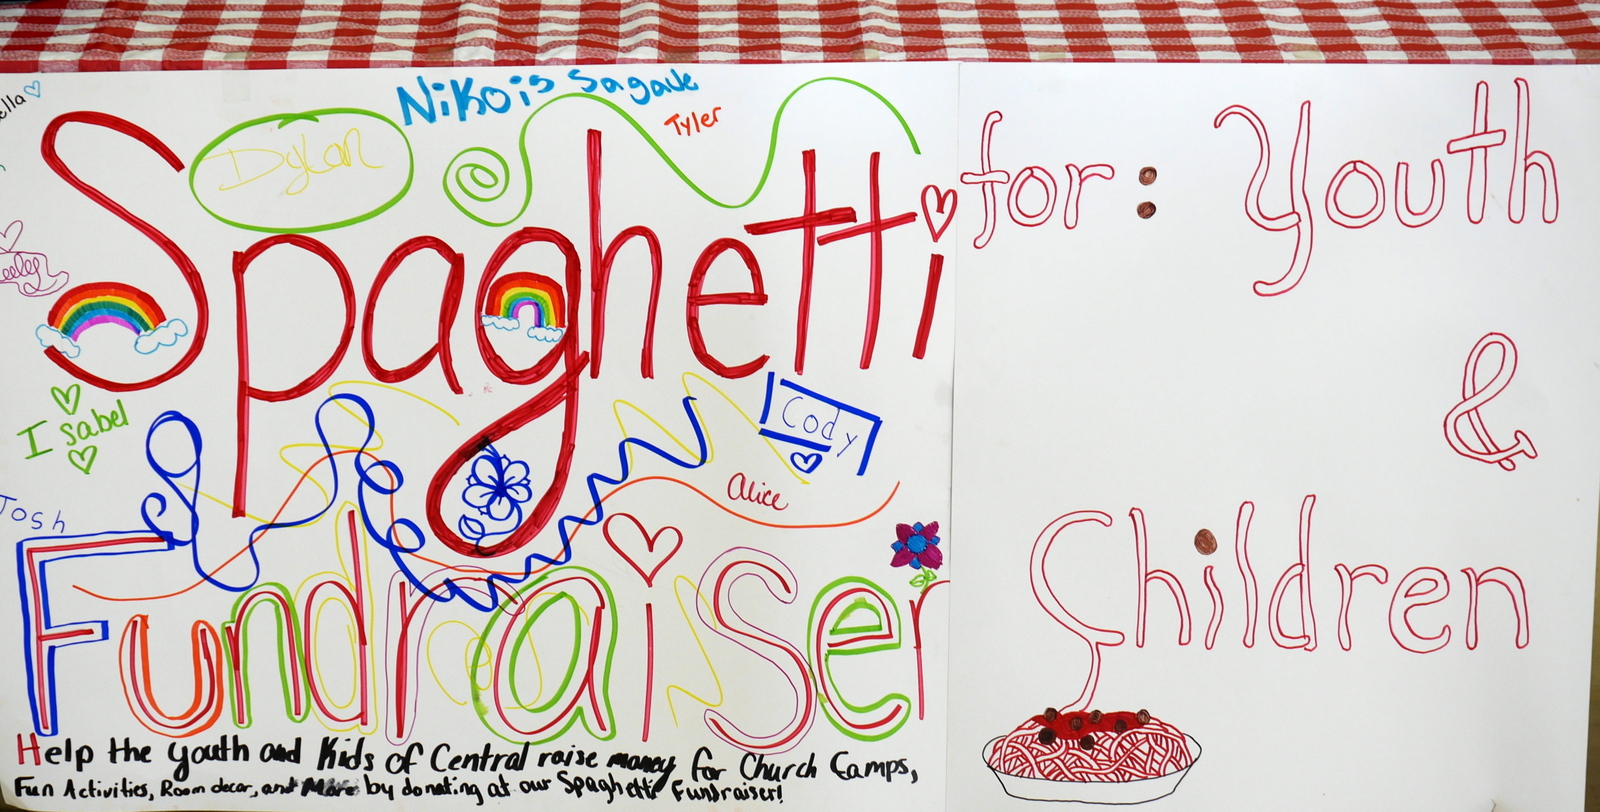 Nikois Sagave
Tyler
Dylan
Spaghetti
for: Youth
&
Children
Isabel
Cody
Alice
Josh
Fundraiser
Help the Youth and Kids of Central raise money for Church Camps,
Fun Activities, Room decor, and More by donating at our Spaghetti Fundraiser!